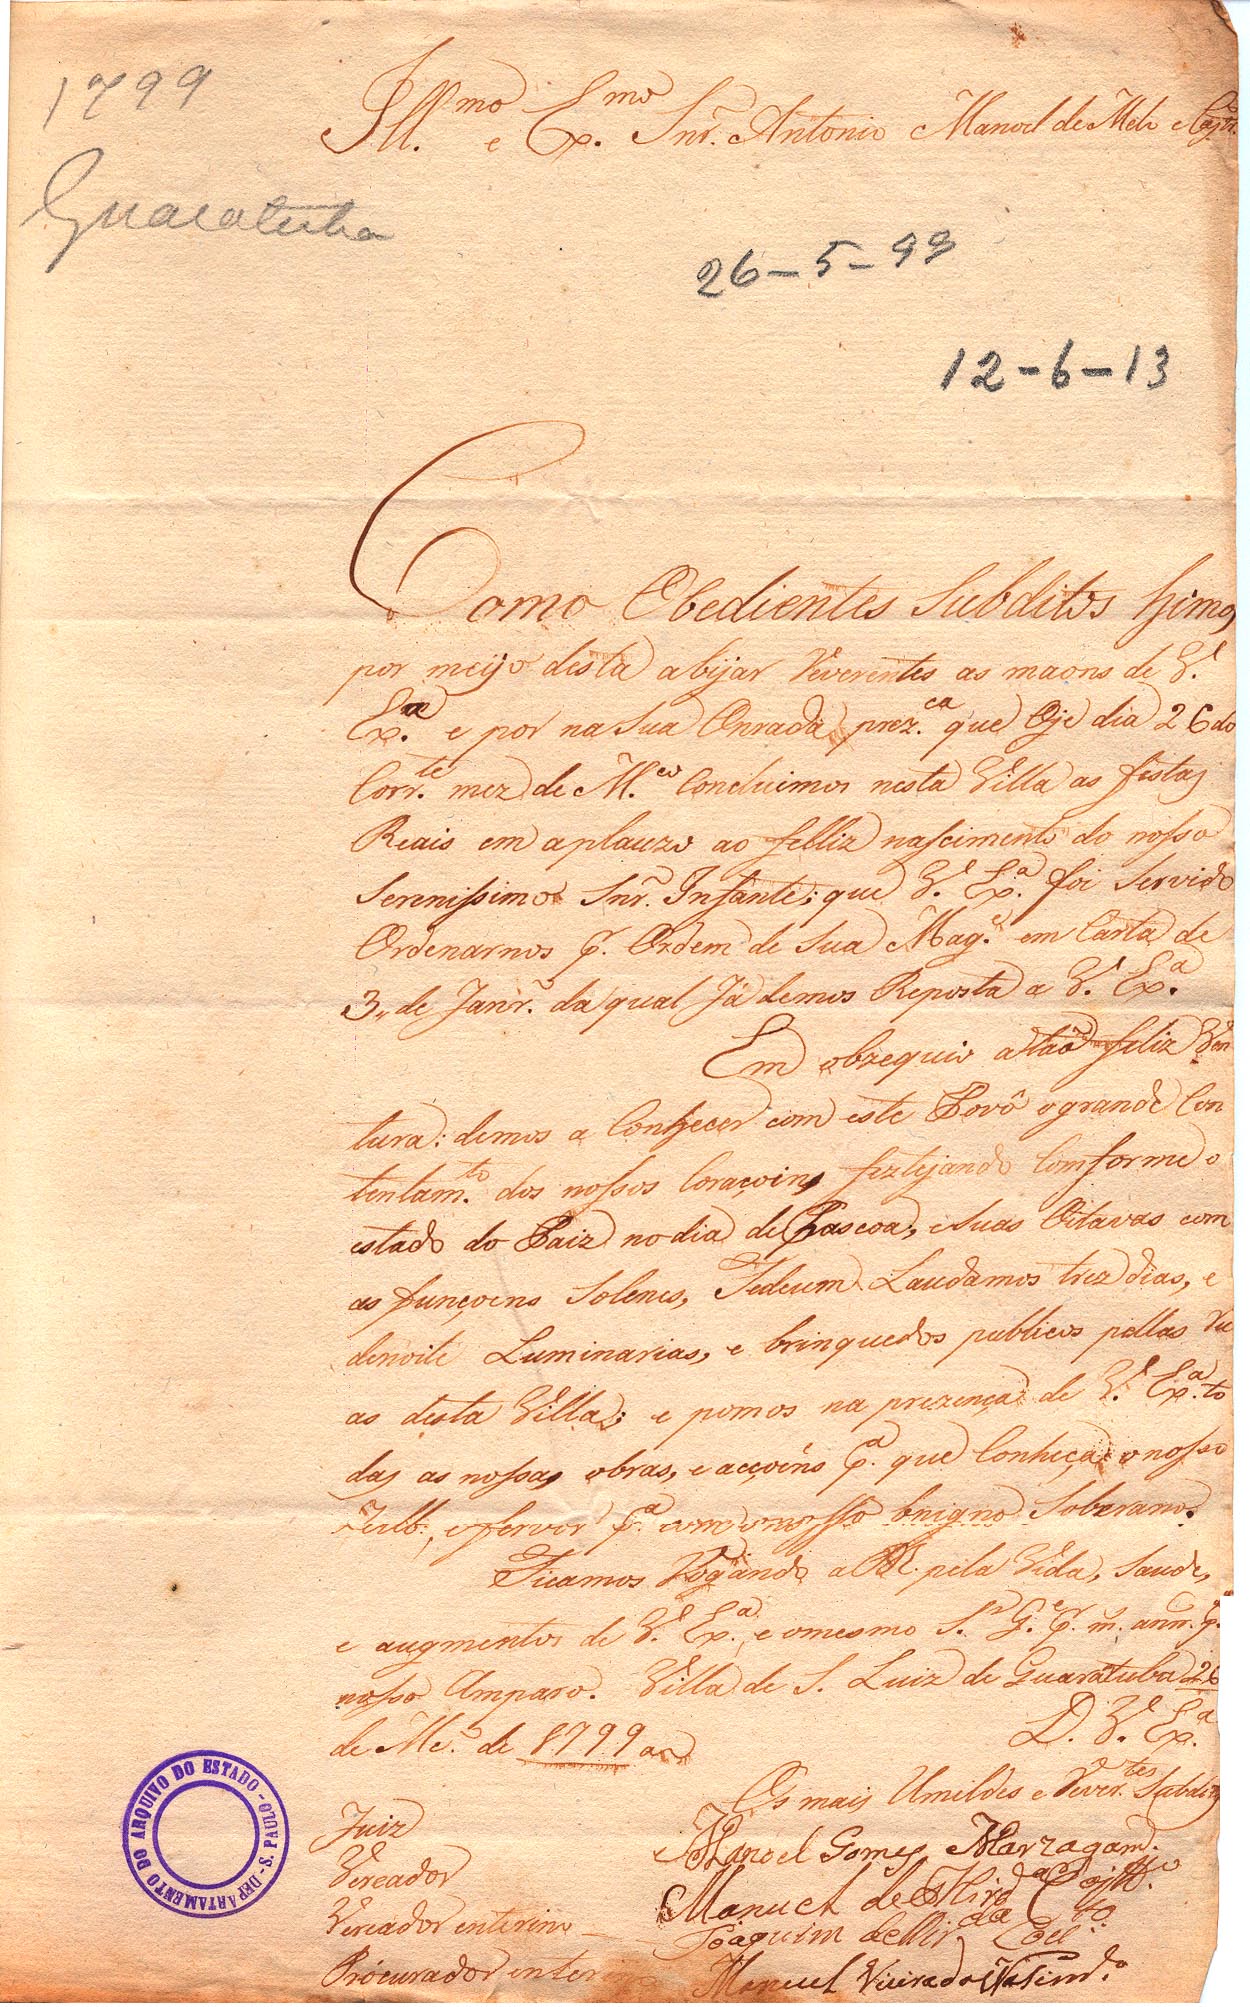 1799
Guaratuba
Ill.mo e Ex.mo Snr. Antonio Manoel de Melo e Castr.o
26-5-99
12-6-13
Como Obedientes Subditos himos
por meijo desta a bijar Reverentes as maons de V.
Ex.a e por na sua Onrada prez.ca que Oje dia 26 do
Corr.te mez de M.ço Concluimos nesta Villa as festas
Reais em aplauzo ao felliz nascimento do nosso
Serenissimo Snr. Infante; que V. Ex.a foi servido
Ordenarnos p.r Ordem de Sua Mag.e em Carta de
3,, de Janr.o da qual Já demos Reposta a V. Ex.a
Em obzequio a tão feliz Ven
tura: demos a Conhecer com este Povô o grande Con
tentam.to dos nossos Coraçoins feztejando Comforme o
estado do Paiz no dia de Pascoa, e suas Oitavas com
as funçoens Solenes, Tedeum Laudamos trez dias, e
denoite Luminarias, e brinquedos publicos pellas Ru
as desta Villa; e pomos na prezença de V. Ex.a to
das as nossas obras, e acçoéns p.a que Conheça o nosso
Zello, e fervor p.a com o nosso benigno Soberano.
Ficamos Rogando a D. pela Vida, Saude,
e augmentos de V. Ex.a, e o mesmo S.r G.e p.r m. ann. p.a
nosso Amparo. Villa de S. Luiz de Guaratuba 26
de M.ço de 1799 an
D. V. Ex.a
Os mais Umildes e Rever.tes Subditos
Juiz Manoel Gomes Marzagam.
Vereador Manuel de Mir.da
Vereador enterino Joaquim de Mir.da Coel.o
Procurador enterino Manuel Vieira do
DEPARTAMENTO DO ARQUIVO DO ESTADO - S. PAULO -